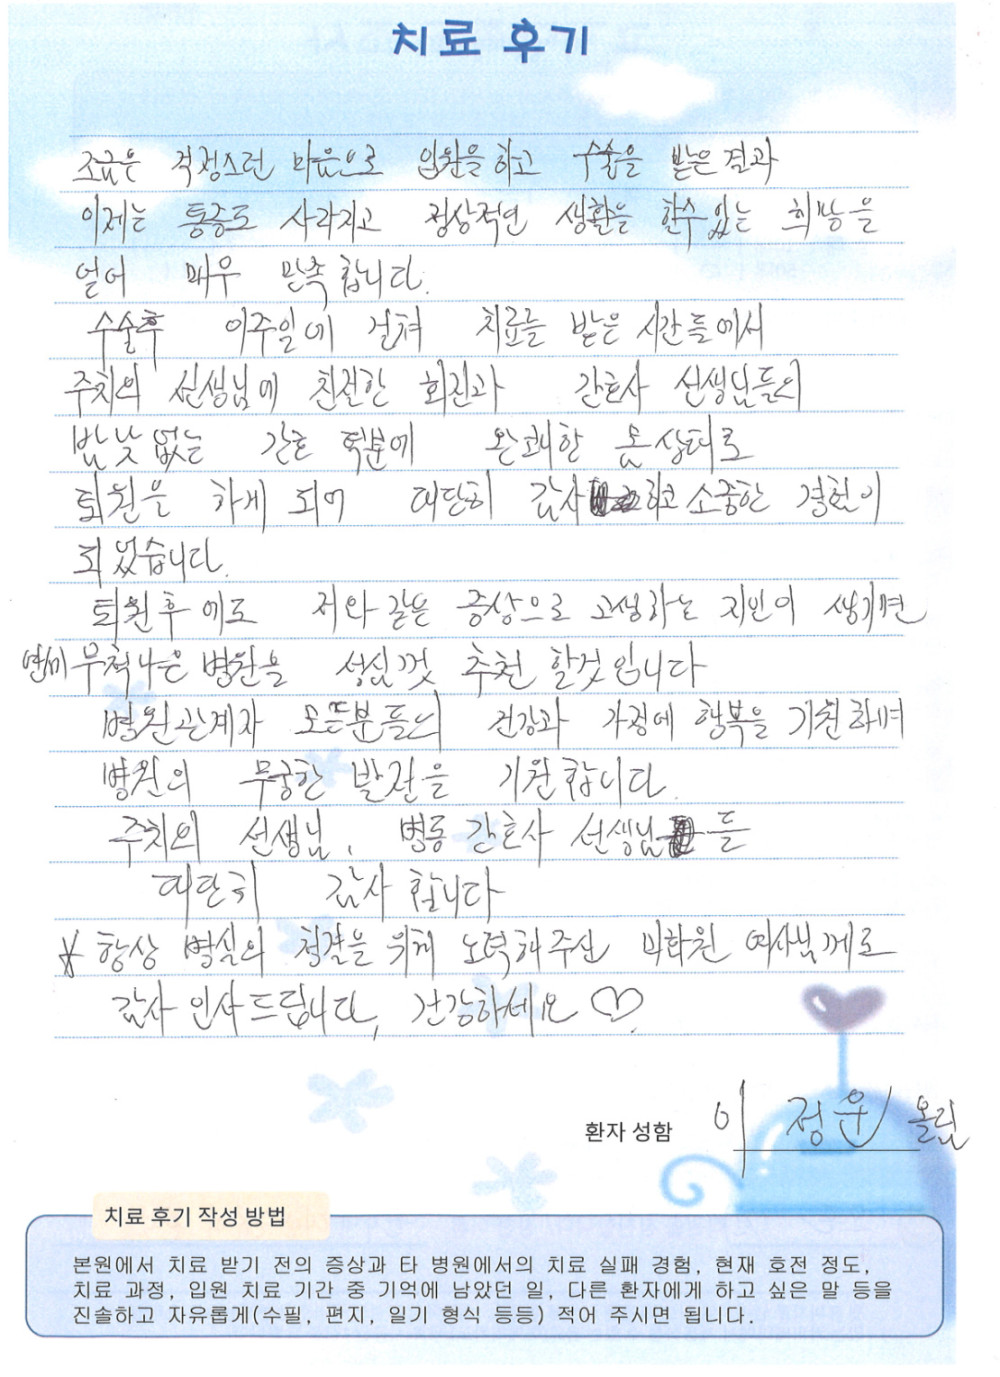 치료 후기
조금은 걱정스런 마음으로 입원을 하고 수술을 받은 결과
이제는 통증도 사라지고 정상적인 생활을 할수 있는 희망을
얻어 매우 만족 합니다.
수술후 이주일에 걸쳐 치료를 받은 시간들에서
주치의 선생님에 친절한 회진과 간호사 선생님들의
밤낮 없는 간호 덕분에 완쾌한 몸 상태로
퇴원을 하게 되어 대단히 감사하고 소중한 경험이
되었습니다.
퇴원후에도 저와 같은 증상으로 고생하는 지인이 생기면
무척나은 병원을 성심껏 추천 할것입니다
병원관계자 모든분들의 건강과 가정에 행복을 기원하며
병원의 무궁한 발전을 기원합니다.
주치의 선생님, 병동 간호사 선생님들
대단히 감사 합니다
* 항상 병실의 청결을 위해 노력해주신 여사님께도
감사 인사드립니다, 건강하세요 ♡
환자 성함 이 정운 올림
치료 후기 작성 방법
본원에서 치료 받기 전의 증상과 타 병원에서의 치료 실패 경험, 현재 호전 정도,
치료 과정, 입원 치료 기간 중 기억에 남았던 일, 다른 환자에게 하고 싶은 말 등을
진솔하고 자유롭게(수필, 편지, 일기 형식 등등) 적어 주시면 됩니다.